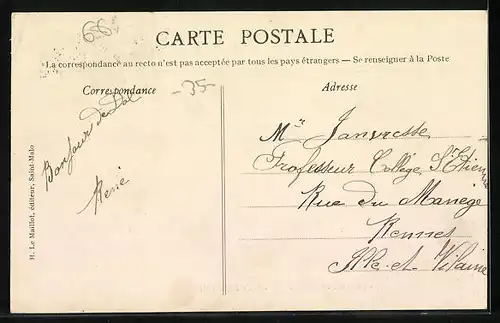 666
CARTE POSTALE
La correspondance au recto n'est pas acceptée par tous les pays étrangers — Se renseigner à la Poste
Correspondance
-35
Adresse
Bonjour de Dol
René
Mr Janvresse
Professeur Collège St Etienne
Rue du Manège
Rennes
Ille-et-Vilaine
H. Le Maillot, éditeur, Saint-Malo